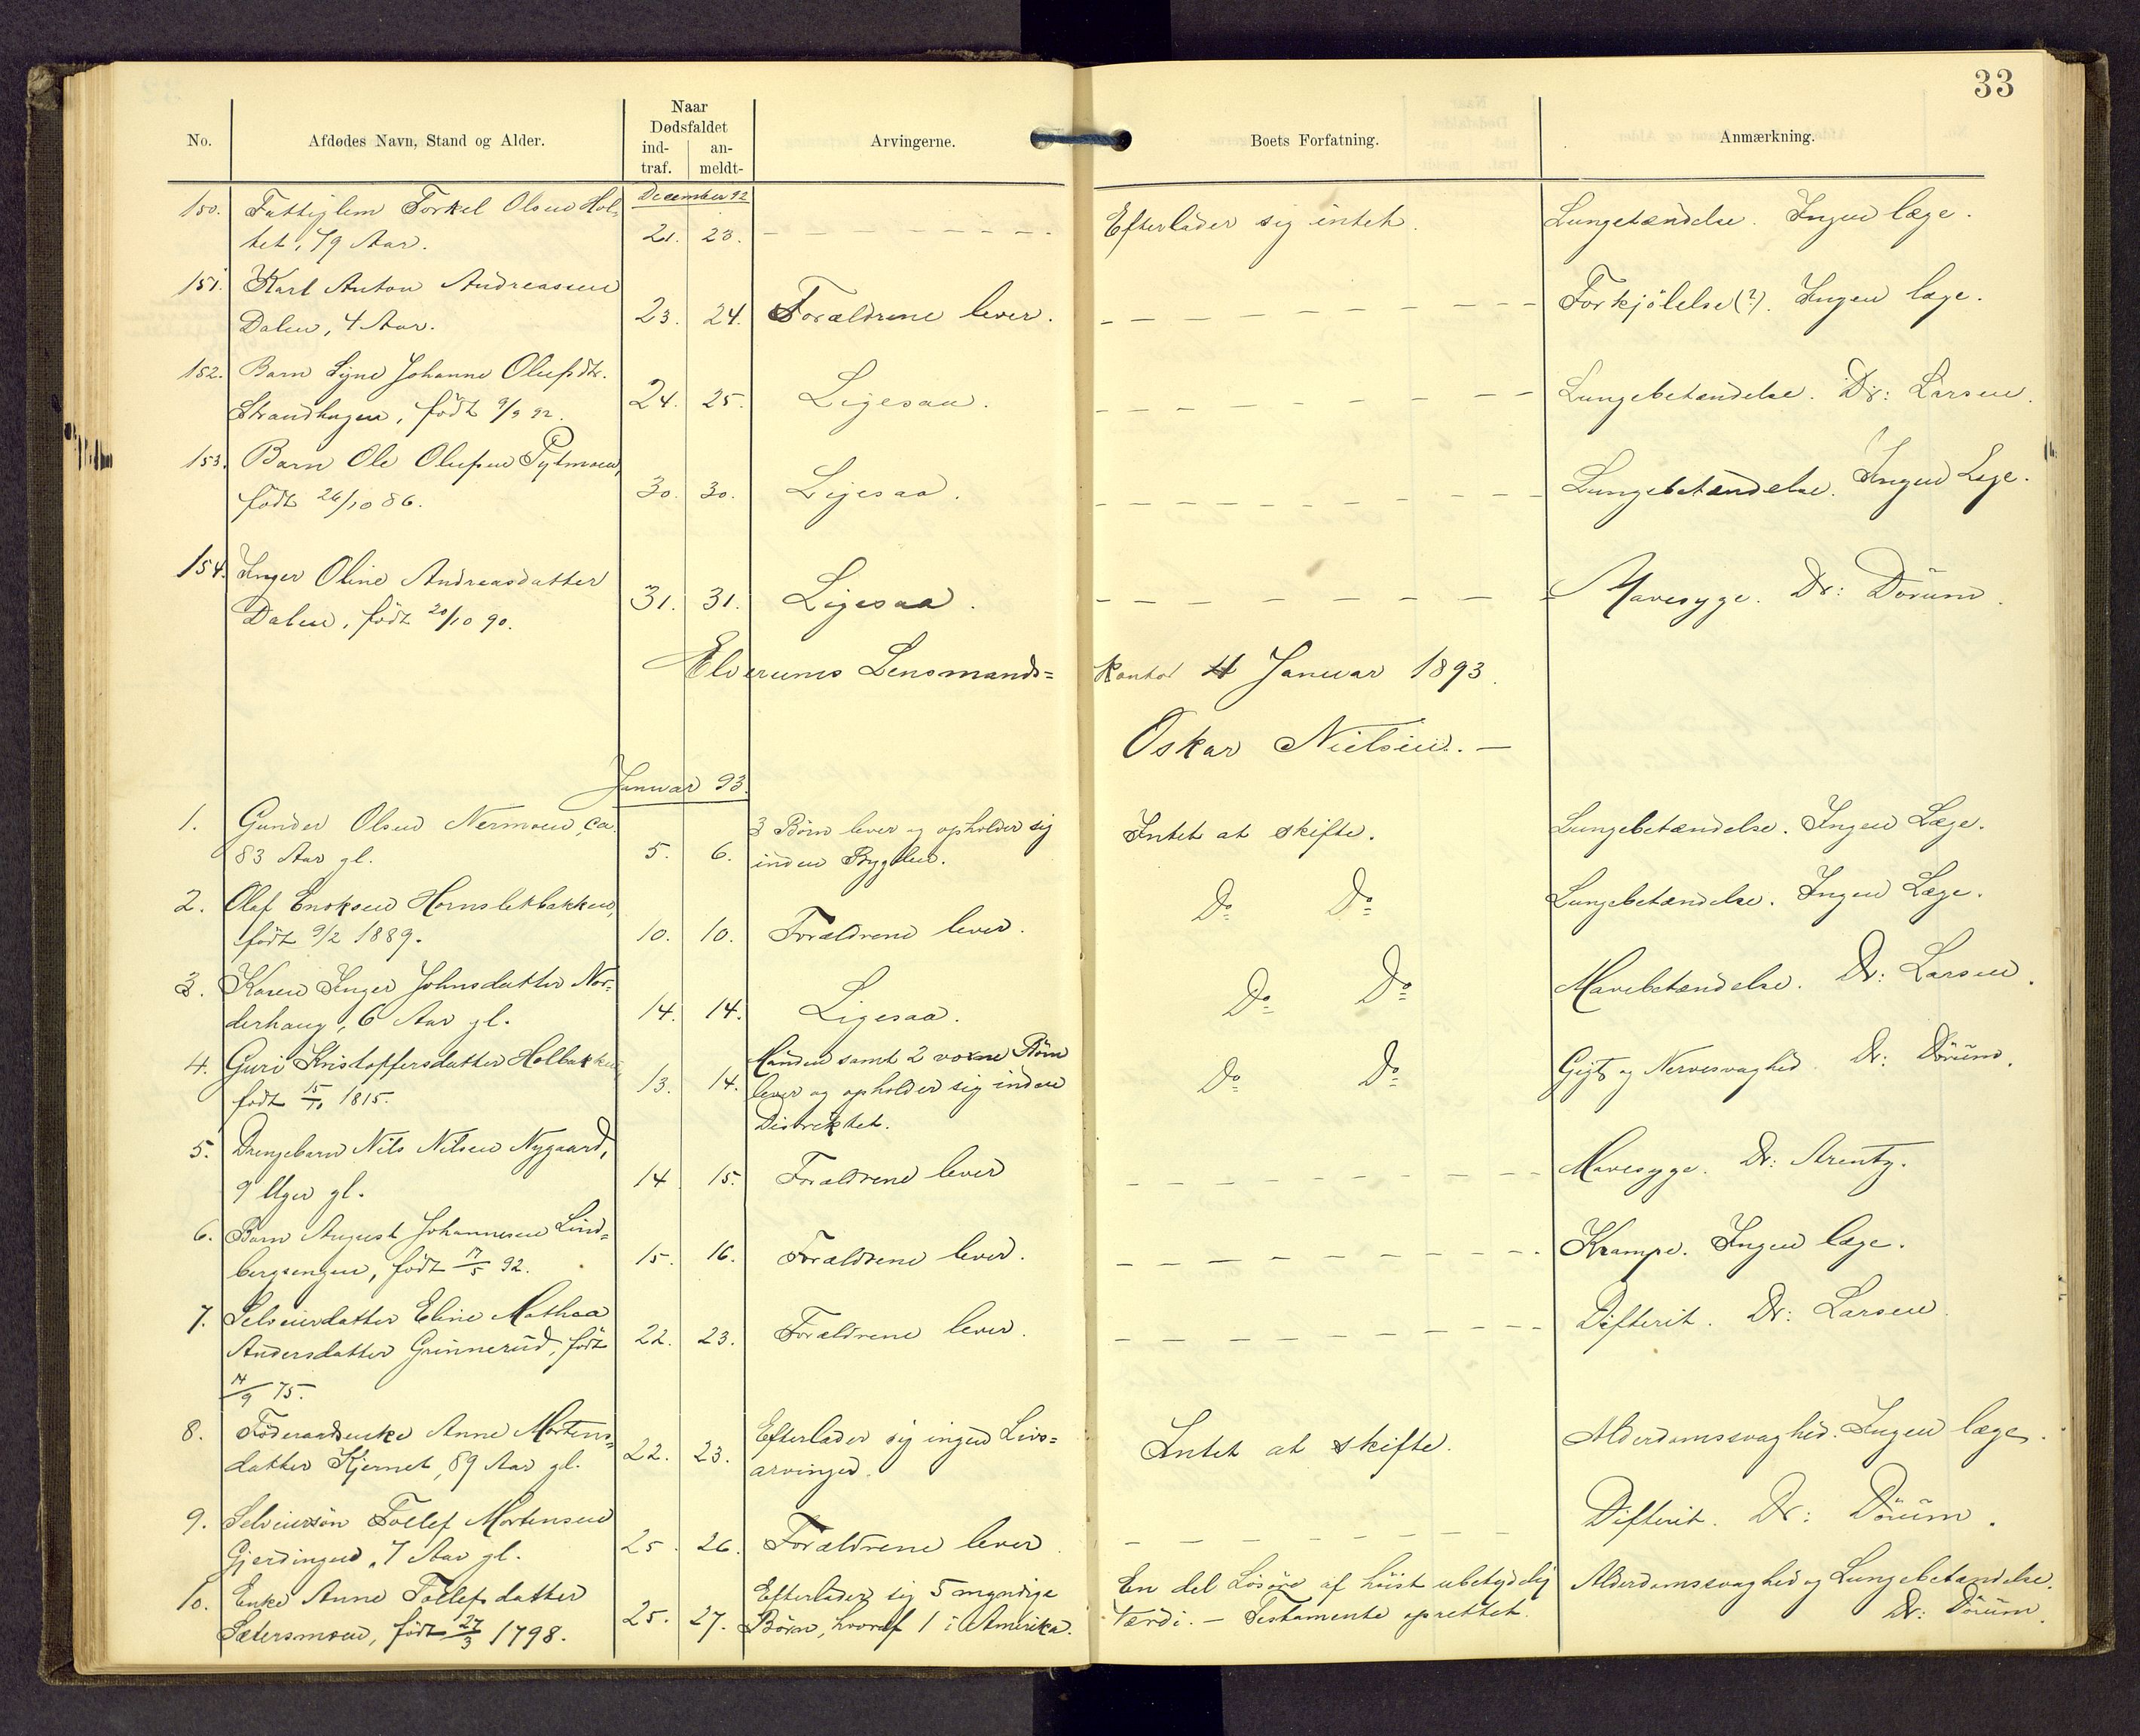 33
No.
Afdødes Navn, Stand og Alder.
Naar
Dødsfaldet
ind-
traf.
an-
meldt-
Arvingerne.
Boets Forfatning.
Anmærkning.
December 92
150. Fattiglem Torkel Olsen Hol-
tet, 79 Aar. 21. 23. Efterlader sig intet. Lungetændelse. Ingen læge.
151. Karl Anton Andreassen
Dalen, 4 Aar. 23. 24. Forældrene lever. Forkjölelse(?). Ingen læge.
152. Barn Signe Johanne Olufsdtr.
Strandhagen, födt 9/9 92. 24. 25. Ligesaa. Lungebetændelse. Dr: Larsen.
153. Barn Ole Olufsen Pytmoen,
födt 26/10 86. 30. 30. Ligesaa. Lungebetændelse. Ingen Læge.
154. Inger Oline Andreasdatter
Dalen, födt 20/10 90. 31. 31. Ligesaa. Mavesyge. Dr: Dörum.
Elverums Lensmands=kontor 4 Januar 1893.
Oskar Nielsen. —
Januar 93.
1. Gunder Olsen Nermoen, ca.
83 Aar gl. 5. 6. 3 Börn lever og opholder sig
inden Bygden. Intet at skifte. Lungebetændelse. Ingen Læge.
2. Olaf Enoksen Hornsletbakken,
födt 9/2 1889. 10. 10. Forældrene lever. Do Do Lungebetændelse. Ingen Læge.
3. Karen Inger Johnsdatter Nor-
derhaug, 6 Aar gl. 14. 14. Ligesaa. Do Do Mavebetændelse. Dr: Larsen.
4. Guri Kristoffersdatter Holbakken
födt 15/10 1815. 13. 14. Manden samt 2 voxne Börn
lever og opholder sig inden
Distriktet. Do Do Gigt og Nervesvaghed. Dr: Dörum.
5. Drengebarn Nils Nilsen Nygaard,
9 Uger gl. 14 15. Forældrene lever Mavesyge. Dr: Arentz.
6. Barn August Johannesen Lind-
bergsengen, födt 17/5 92. 15. 16. Forældrene lever. Krampe. Ingen læge.
7. Selveierdatter Eline Mathea
Andersdatter Grinnerud, födt
14/9 75. 22. 23. Forældrene lever. Difterit. Dr: Larsen.
8. Föderaadsenke Anne Mortens-
datter Kjernet, 89 Aar gl. 22. 23. Efterlader sig ingen Livs=
arvinger. Intet at skifte. Alderdomssvaghed. Ingen læge.
9. Selveiersön Tollef Mortensen
Gjerdingen, 7 Aar gl. 25. 26. Forældrene lever. Difterit. Dr: Dörum.
10. Enke Anne Tollefsdatter
Sætersmoen, födt 27/3 1798. 25. 27. Efterlader sig 5 myndige
Börn, hvoraf 1 i Amerika. En del Lösöre af höist ubetydelig
Værdi. — Testamente oprettet. Alderdomssvaghed og Lungebetændelse.
Dr: Dörum.